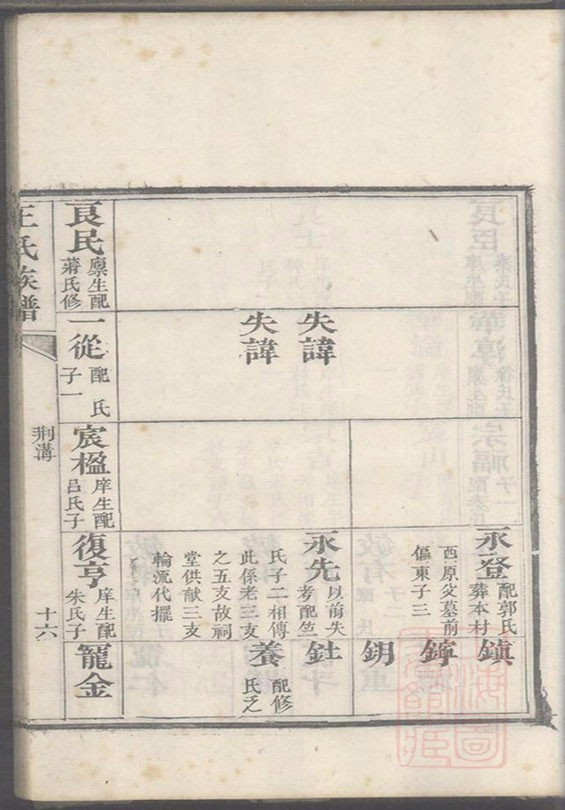 失諱
失諱
永登 配郭氏
葬本村
西原父墓前
偏東子三
永先 以前失
考配竺
氏子二相傳
此係老三支
之五支故祠
堂供献三支
輪流代擺
鎮
鐏
鈅
釷
養 配修
氏乏
良民 廪生配
蔣氏修
一從 配 氏
子一
宸楹 庠生配
吕氏子
復亨 庠生配
朱氏子
寵金
王氏族譜
荆溝
十六